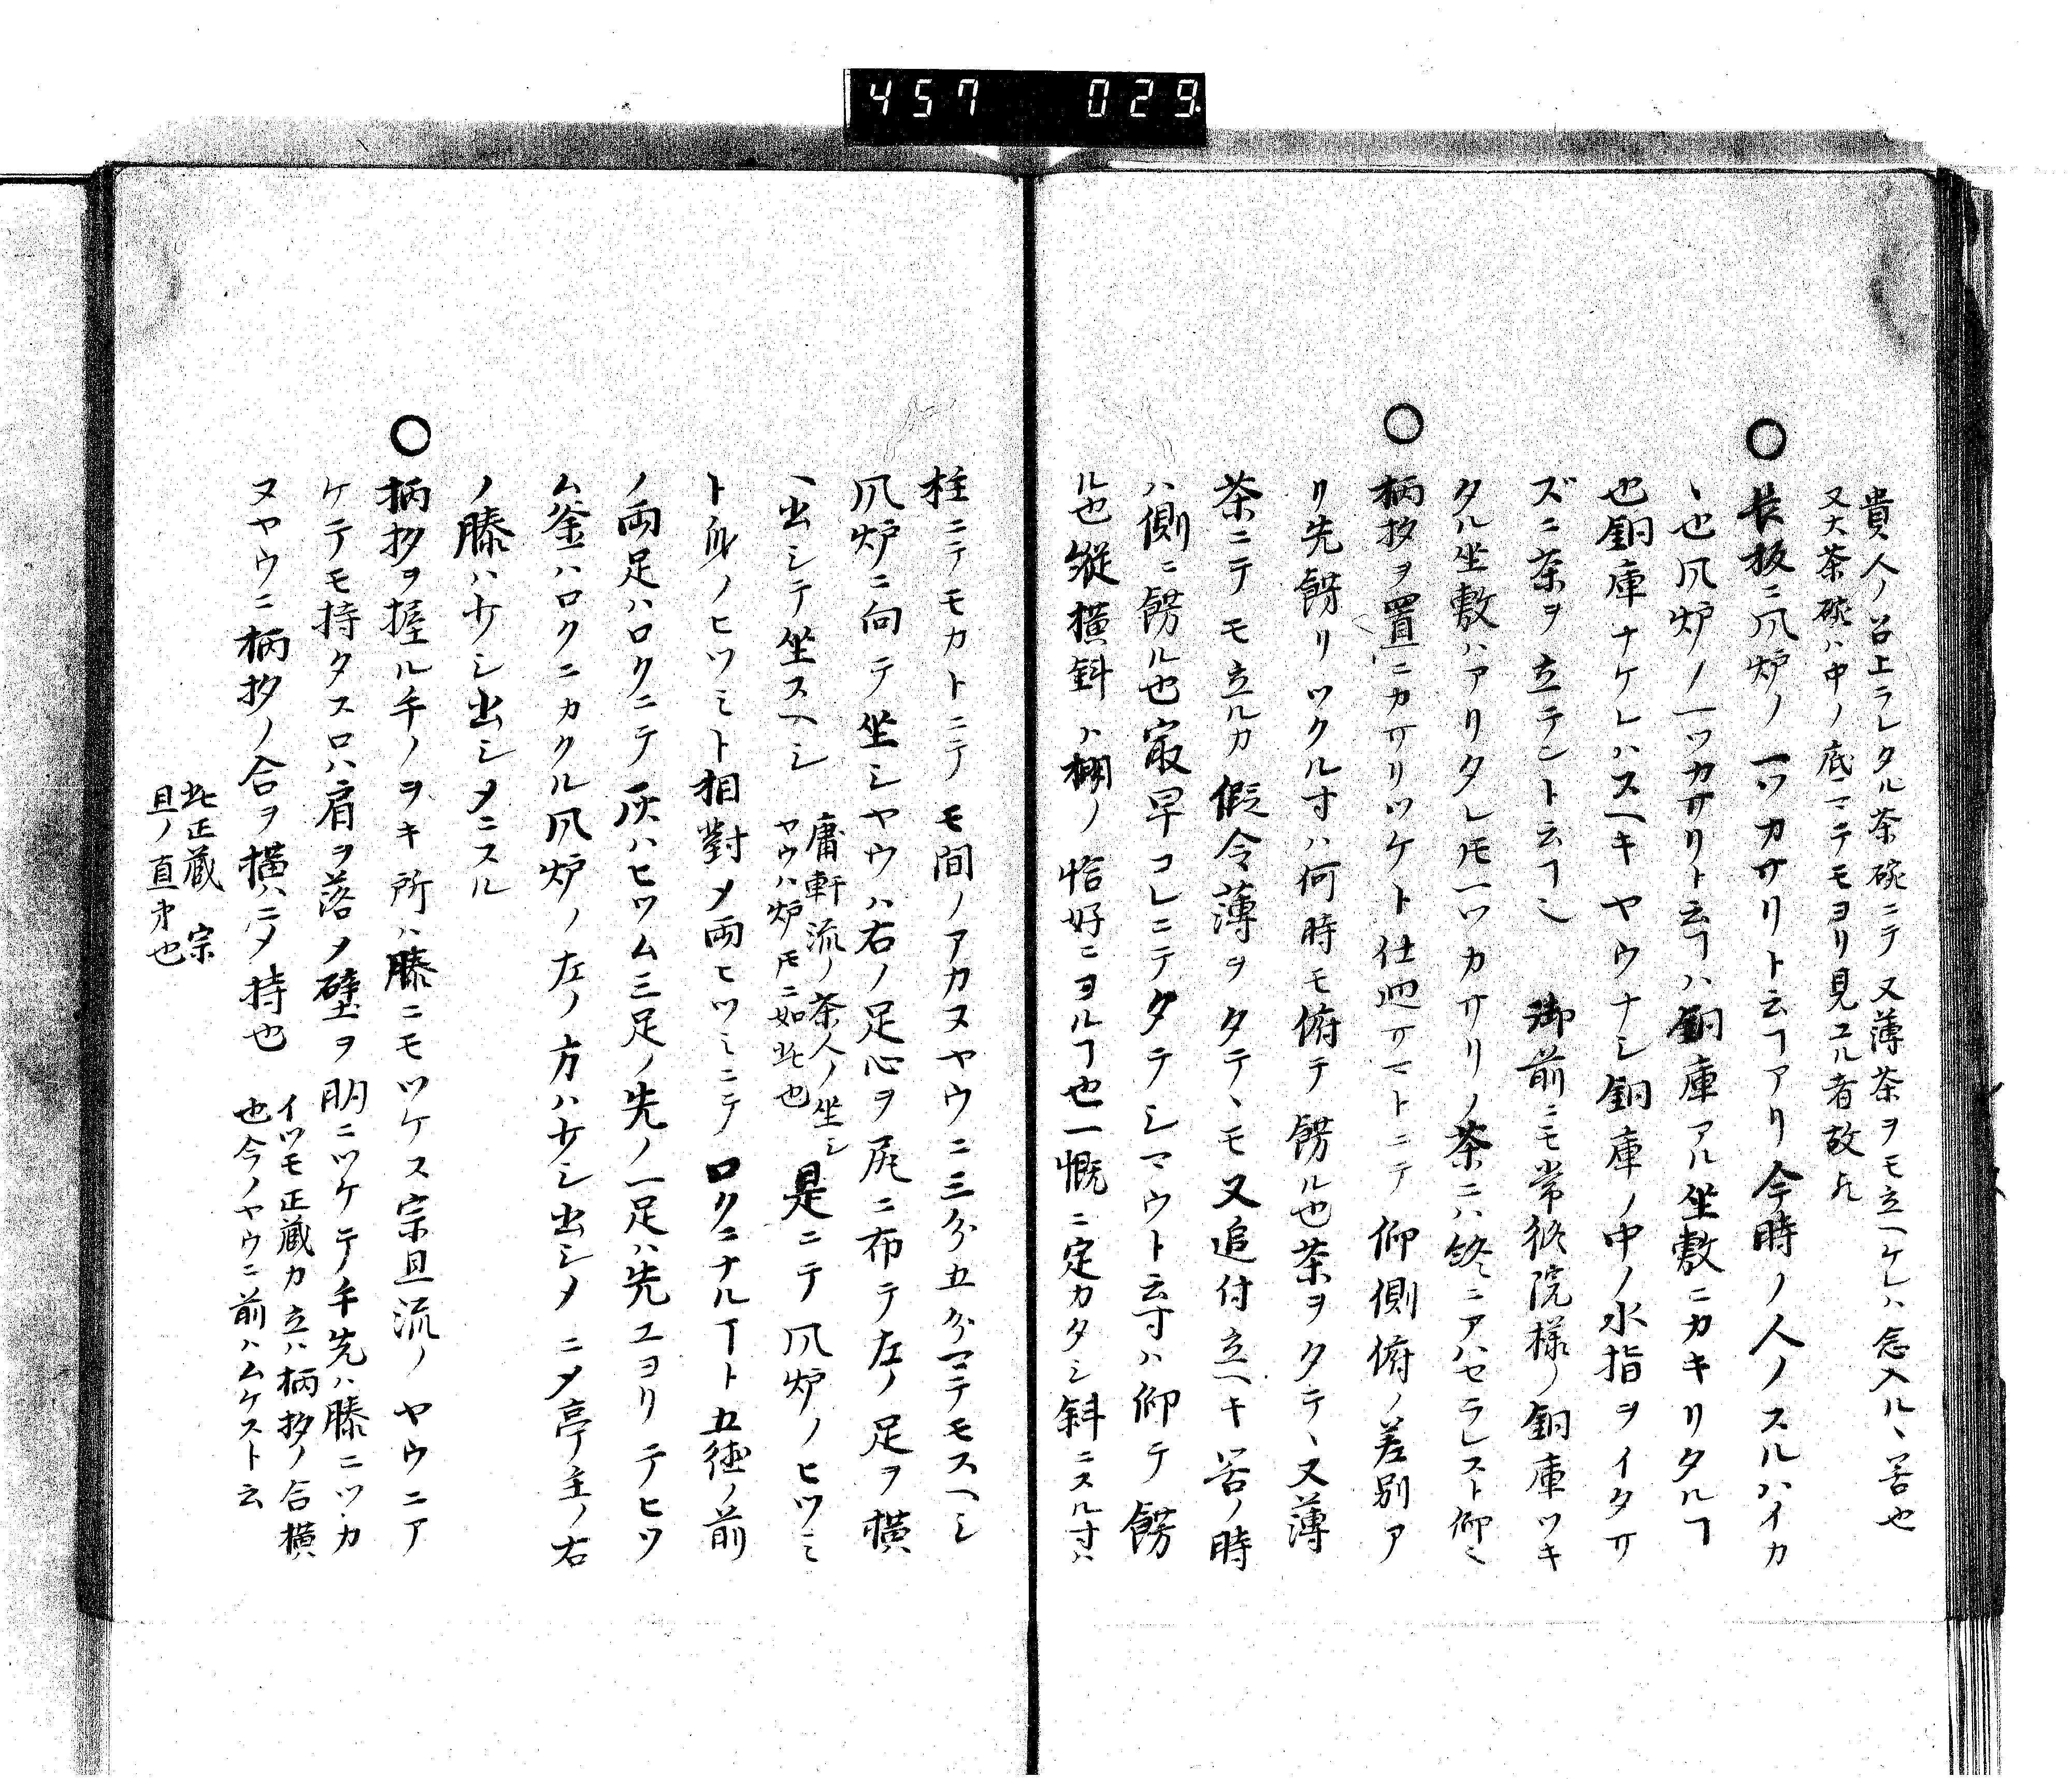 457 029
貴人ノ召上ラレタル茶碗ニテ又薄茶ヲモ立ヘケレハ念入ル丶筈也
又大茶碗ハ中ノ底マテモヨリ見ユル者故
○長板ニ爪炉ノ一ツカサリト云ヿアリ今時ノ人ノスルハイカ
丶也爪炉ノ一ツカサリト云ヿハ銅庫アル坐敷ニカキリタルヿ
也銅庫ナケレハスヘキヤウナシ銅庫ノ中ノ水指ヲイタサ
ズニ茶ヲ立テント云ヿ 御前ニモ常修院様ノ銅庫ツキ
タル坐敷ハアリタレ𪜈一ツカサリノ茶ニハ終ニアハセラレスト仰
○柄抄ヲ置ニカサリツケト仕廻サマトニテ仰側俯ノ差別ア
リ先餝リツクル寸ハ何時モ俯テ餝ル也茶ヲタテ丶又薄
茶ニテモ立ルカ假令薄ヲタテ丶モ又追付立ヘキ筈ノ時
ハ側ニ餝ル也最早コレニテタテシマウト云寸ハ仰テ餝
ル也縦横斜ハ棚ノ恰好ニヨルヿ也一慨ニ定カタシ斜ニスル寸ハ
柱ニテモカトニテモ間ノアカヌヤウニ三分五分マテモスヘシ
爪炉ニ向テ坐シヤウハ右ノ足心ヲ尻ニ布テ左ノ足ヲ横
ヘ出シテ坐スヘシ
庸軒流ノ茶人ノ坐シ
ヤウハ炉𪜈ニ如此也
是ニテ爪炉ノヒツミ
ト身ノヒツミト相對〆両ヒツミニテロクニナルヿト五徳ノ前
ノ両足ハロクニテ灰ハヒツム三足ノ先ノ一足ハ先エヨリテヒツ
ム釜ハロクニカクル爪炉ノ左ノ方ハ少シ出シメニ〆亭主ノ右
ノ膝ハ少シ出シメニスル
○柄抄ヲ握ル手ノヲキ所ハ膝ニモツケス宗旦流ノヤウニア
ケテモ持タスロハ肩ヲ落〆臂ヲ明ニツケテ手先ハ膝ニツカ
ヌヤウニ柄抄ノ合ヲ横ニ〆持也
イツモ正蔵カ立ハ柄抄ノ合横
也今ノヤウニ前ハムケスト云
此正蔵 宗
旦ノ直弟也